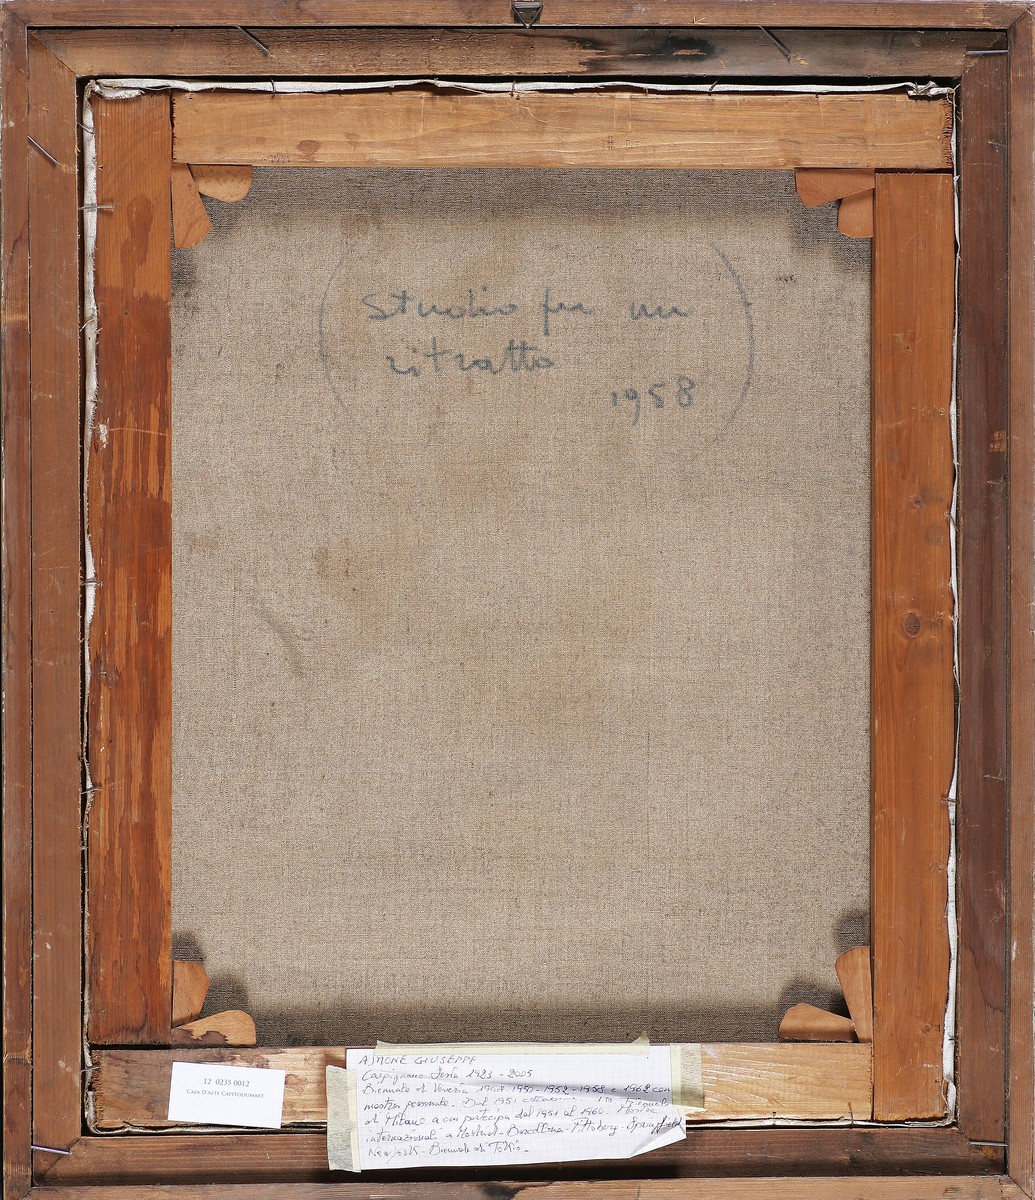 Studio per un
ritratto
1958
12 0235 0012
CASA D'ASTE CAPITOLIUMART
AJMONE GIUSEPPE
Carpignano Sesia 1923 - 2005
Biennale di Venezia 1948 1950 - 1952 - 1958 e 1962 con
mostra personale. Dal 1951 Triennale
di Milano a cui partecipa dal 1951 al 1960. Mostre
internazionali a Barcellona - Pittsburg - Springfield
New York - Biennale di Tokio.